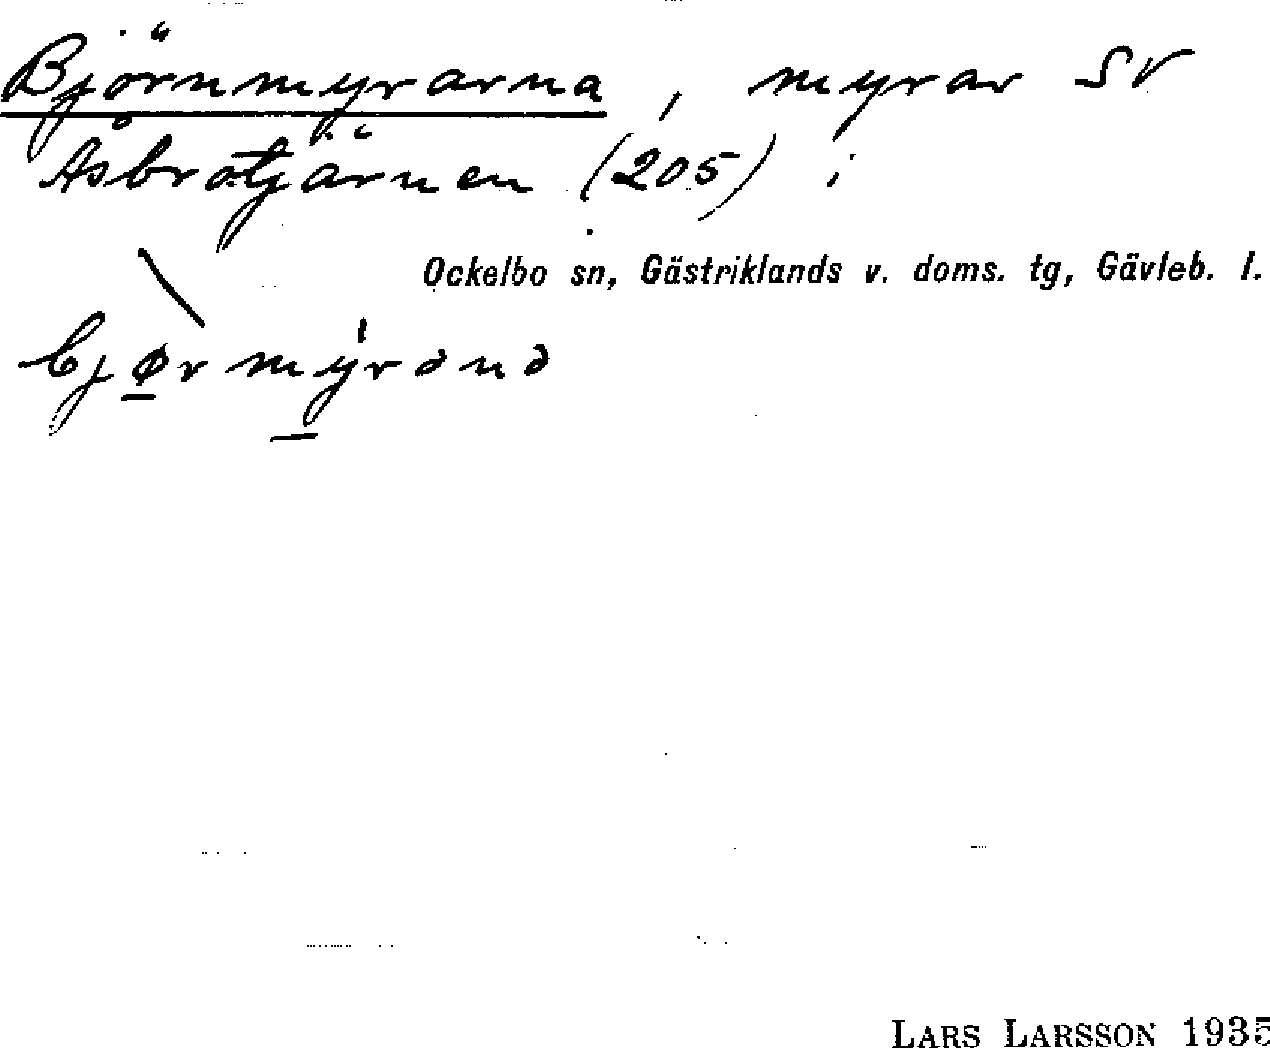 Björnmyrarna, myrar SV
Åsbrotjärnen (205) i
Ockelbo sn, Gästriklands v. doms. tg, Gävleb. l.
bjørmýrənə
LARS LARSSON 1935